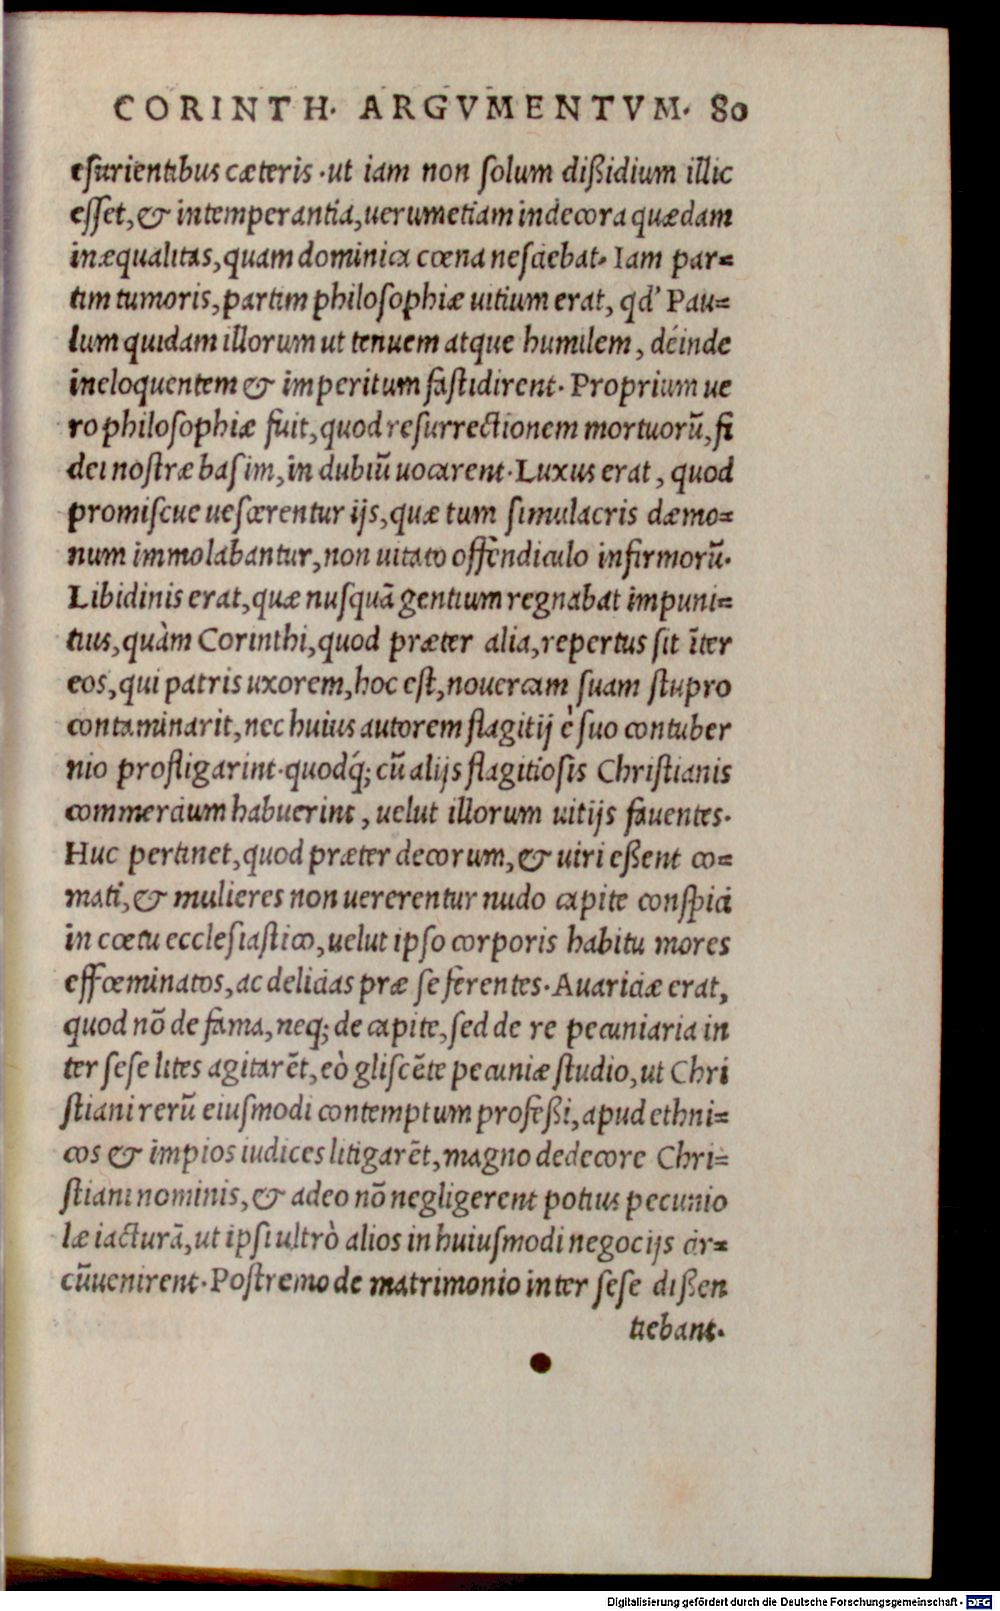 CORINTH· ARGVMENTVM· 80
eſurientibus cæteris ·ut iam non ſolum dißidium illic
eſſet,& intemperantia,uerumetiam indecora quædam
inæqualitas,quam dominica cœna neſciebat· Iam par=
tim tumoris,partim philoſophiæ uitium erat, qd' Pau=
lum quidam illorum ut tenuem atque humilem, déinde
ineloquentem & imperitum faſtidirent· Proprium ue
ro philoſophiæ fuit,quod reſurrectionem mortuorũ,fi
dei noſtræ baſim,in dubiũ uocarent·Luxus erat, quod
promiſcue ueſcerentur ijs,quæ tum ſimulacris dæmo=
num immolabantur,non uitato offendiculo infirmorũ·
Libidinis erat,quæ nuſquã gentium regnabat impuni=
tius,quàm Corinthi,quod præter alia,repertus ſit ĩter
eos,qui patris uxorem,hoc eſt,nouercam ſuam ſtupro
contaminarit,nec huius autorem flagitij è ſuo contuber
nio profligarint·quodq́; cũ alijs flagitioſis Chriſtianis
commercium habuerint, uelut illorum uitijs fauentes·
Huc pertinet,quod præter decorum,& uiri eßent co=
mati,& mulieres non uererentur nudo capite conſpici
in cœtu eccleſiaſtico,uelut ipſo corporis habitu mores
effœminatos,ac delicias præ ſe ferentes·Auariciæ erat,
quod nõ de fama,neq; de capite,ſed de re pecuniaria in
ter ſeſe lites agitarẽt,eò gliſcẽte pecuniæ ſtudio,ut Chri
ſtiani rerũ eiuſmodi contemptum profeßi,apud ethni=
cos & impios iudices litigarẽt,magno dedecore Chri=
ſtiani nominis,& adeo nõ negligerent potius pecunio
læ iacturã,ut ipſi ultrò alios in huiuſmodi negocijs cir=
cũuenirent·Poſtremo de matrimonio inter ſeſe dißen
tiebant·
Digitalisierung gefördert durch die Deutsche Forschungsgemeinschaft - DFG